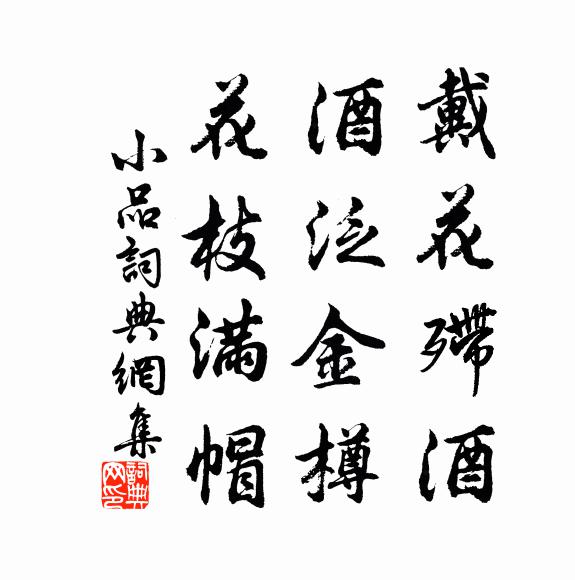 戴花殢酒
酒泛金樽
花枝滿帽
小品詞典網集
詞典网印